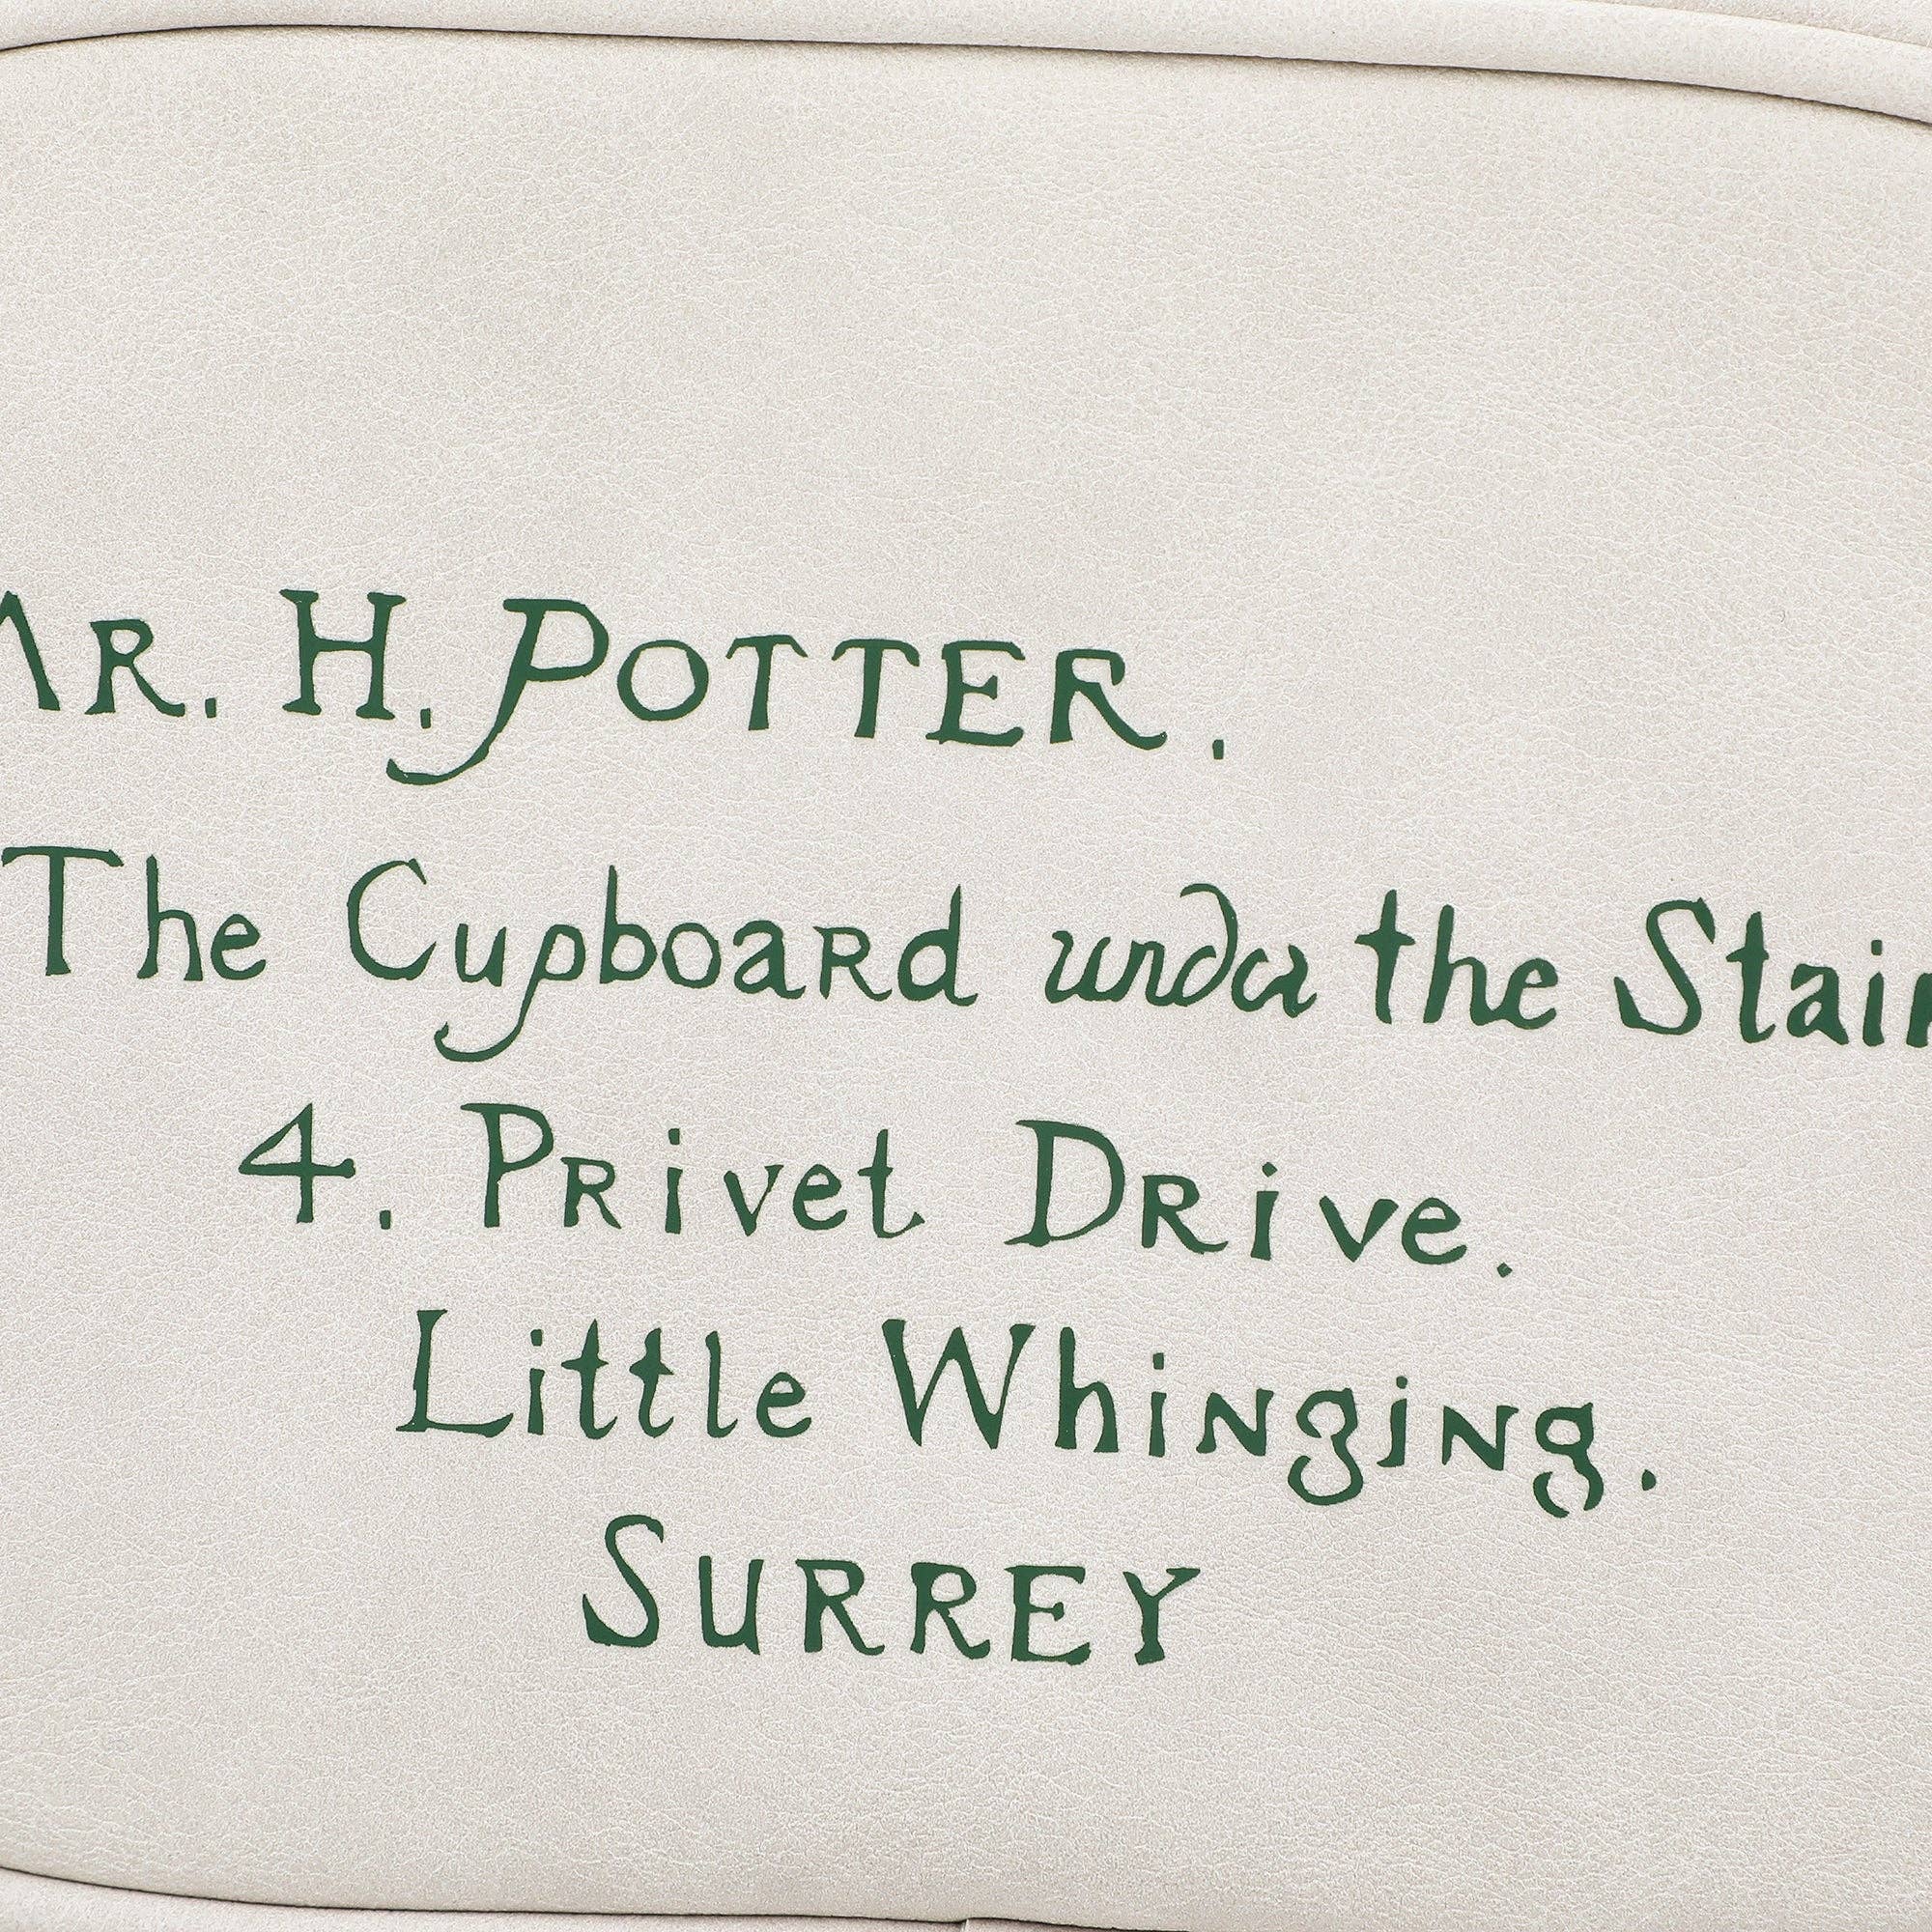 Mr. H. Potter.
The Cupboard under the Stair
4. Privet Drive.
Little Whinging.
Surrey